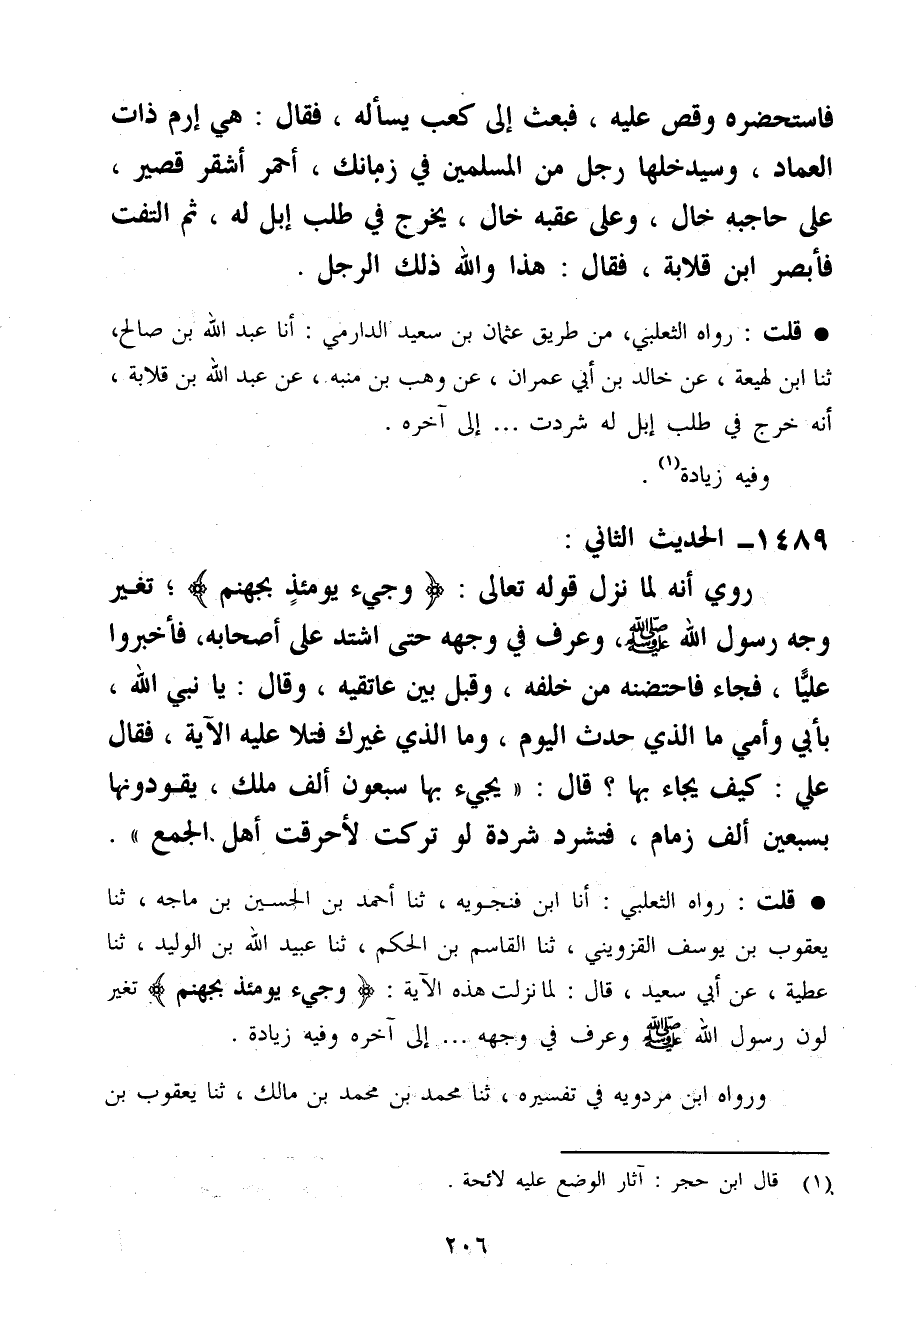 فاستحضره وقص عليه ، فبعث إلى كعب يسأله ، فقال : هي إرم ذات
العماد ، وسيدخلها رجل من المسلمين في زمانك ، أحمر أشقر قصير ،
على حاجبه خال ، وعلى عقبه خال ، يخرج في طلب إبل له ، ثم التفت
فأبصر ابن قلابة ، فقال : هذا والله ذلك الرجل .
● قلت : رواه الثعلبي، من طريق عثمان بن سعيد الدارمي : أنا عبد الله بن صالح،
ثنا ابن لهيعة ، عن خالد بن أبي عمران ، عن وهب بن منبه ، عن عبد الله بن قلابة ،
أنه خرج في طلب إبل له شردت ... إلى آخره .
وفيه زيادة(١) .
١٤٨٩ـ الحديث الثاني :
روي أنه لما نزل قوله تعالى : ﴿ وجيء يومئذٍ بجهنم ﴾ ؛ تغير
وجه رسول الله ﷺ، وعرف في وجهه حتى اشتد على أصحابه، فأخبروا
عليًّا ، فجاء فاحتضنه من خلفه ، وقبل بين عاتقيه ، وقال : يا نبي الله ،
بأبي وأمي ما الذي حدث اليوم ، وما الذي غيرك فتلا عليه الآية ، فقال
علي : كيف يجاء بها ؟ قال : « يجيء بها سبعون ألف ملك ، يقودونها
بسبعين ألف زمام ، فتشرد شردة لو تركت لأحرقت أهل الجمع » .
● قلت : رواه الثعلبي : أنا ابن فنجويه ، ثنا أحمد بن الحسين بن ماجه ، ثنا
يعقوب بن يوسف القزويني ، ثنا القاسم بن الحكم ، ثنا عبيد الله بن الوليد ، ثنا
عطية ، عن أبي سعيد ، قال : لما نزلت هذه الآية : ﴿ وجيء يومئذ بجهنم ﴾ تغير
لون رسول الله ﷺ وعرف في وجهه ... إلى آخره وفيه زيادة .
ورواه ابن مردويه في تفسيره ، ثنا محمد بن محمد بن مالك ، ثنا يعقوب بن
(١) قال ابن حجر : آثار الوضع عليه لائحة .
٢٠٦